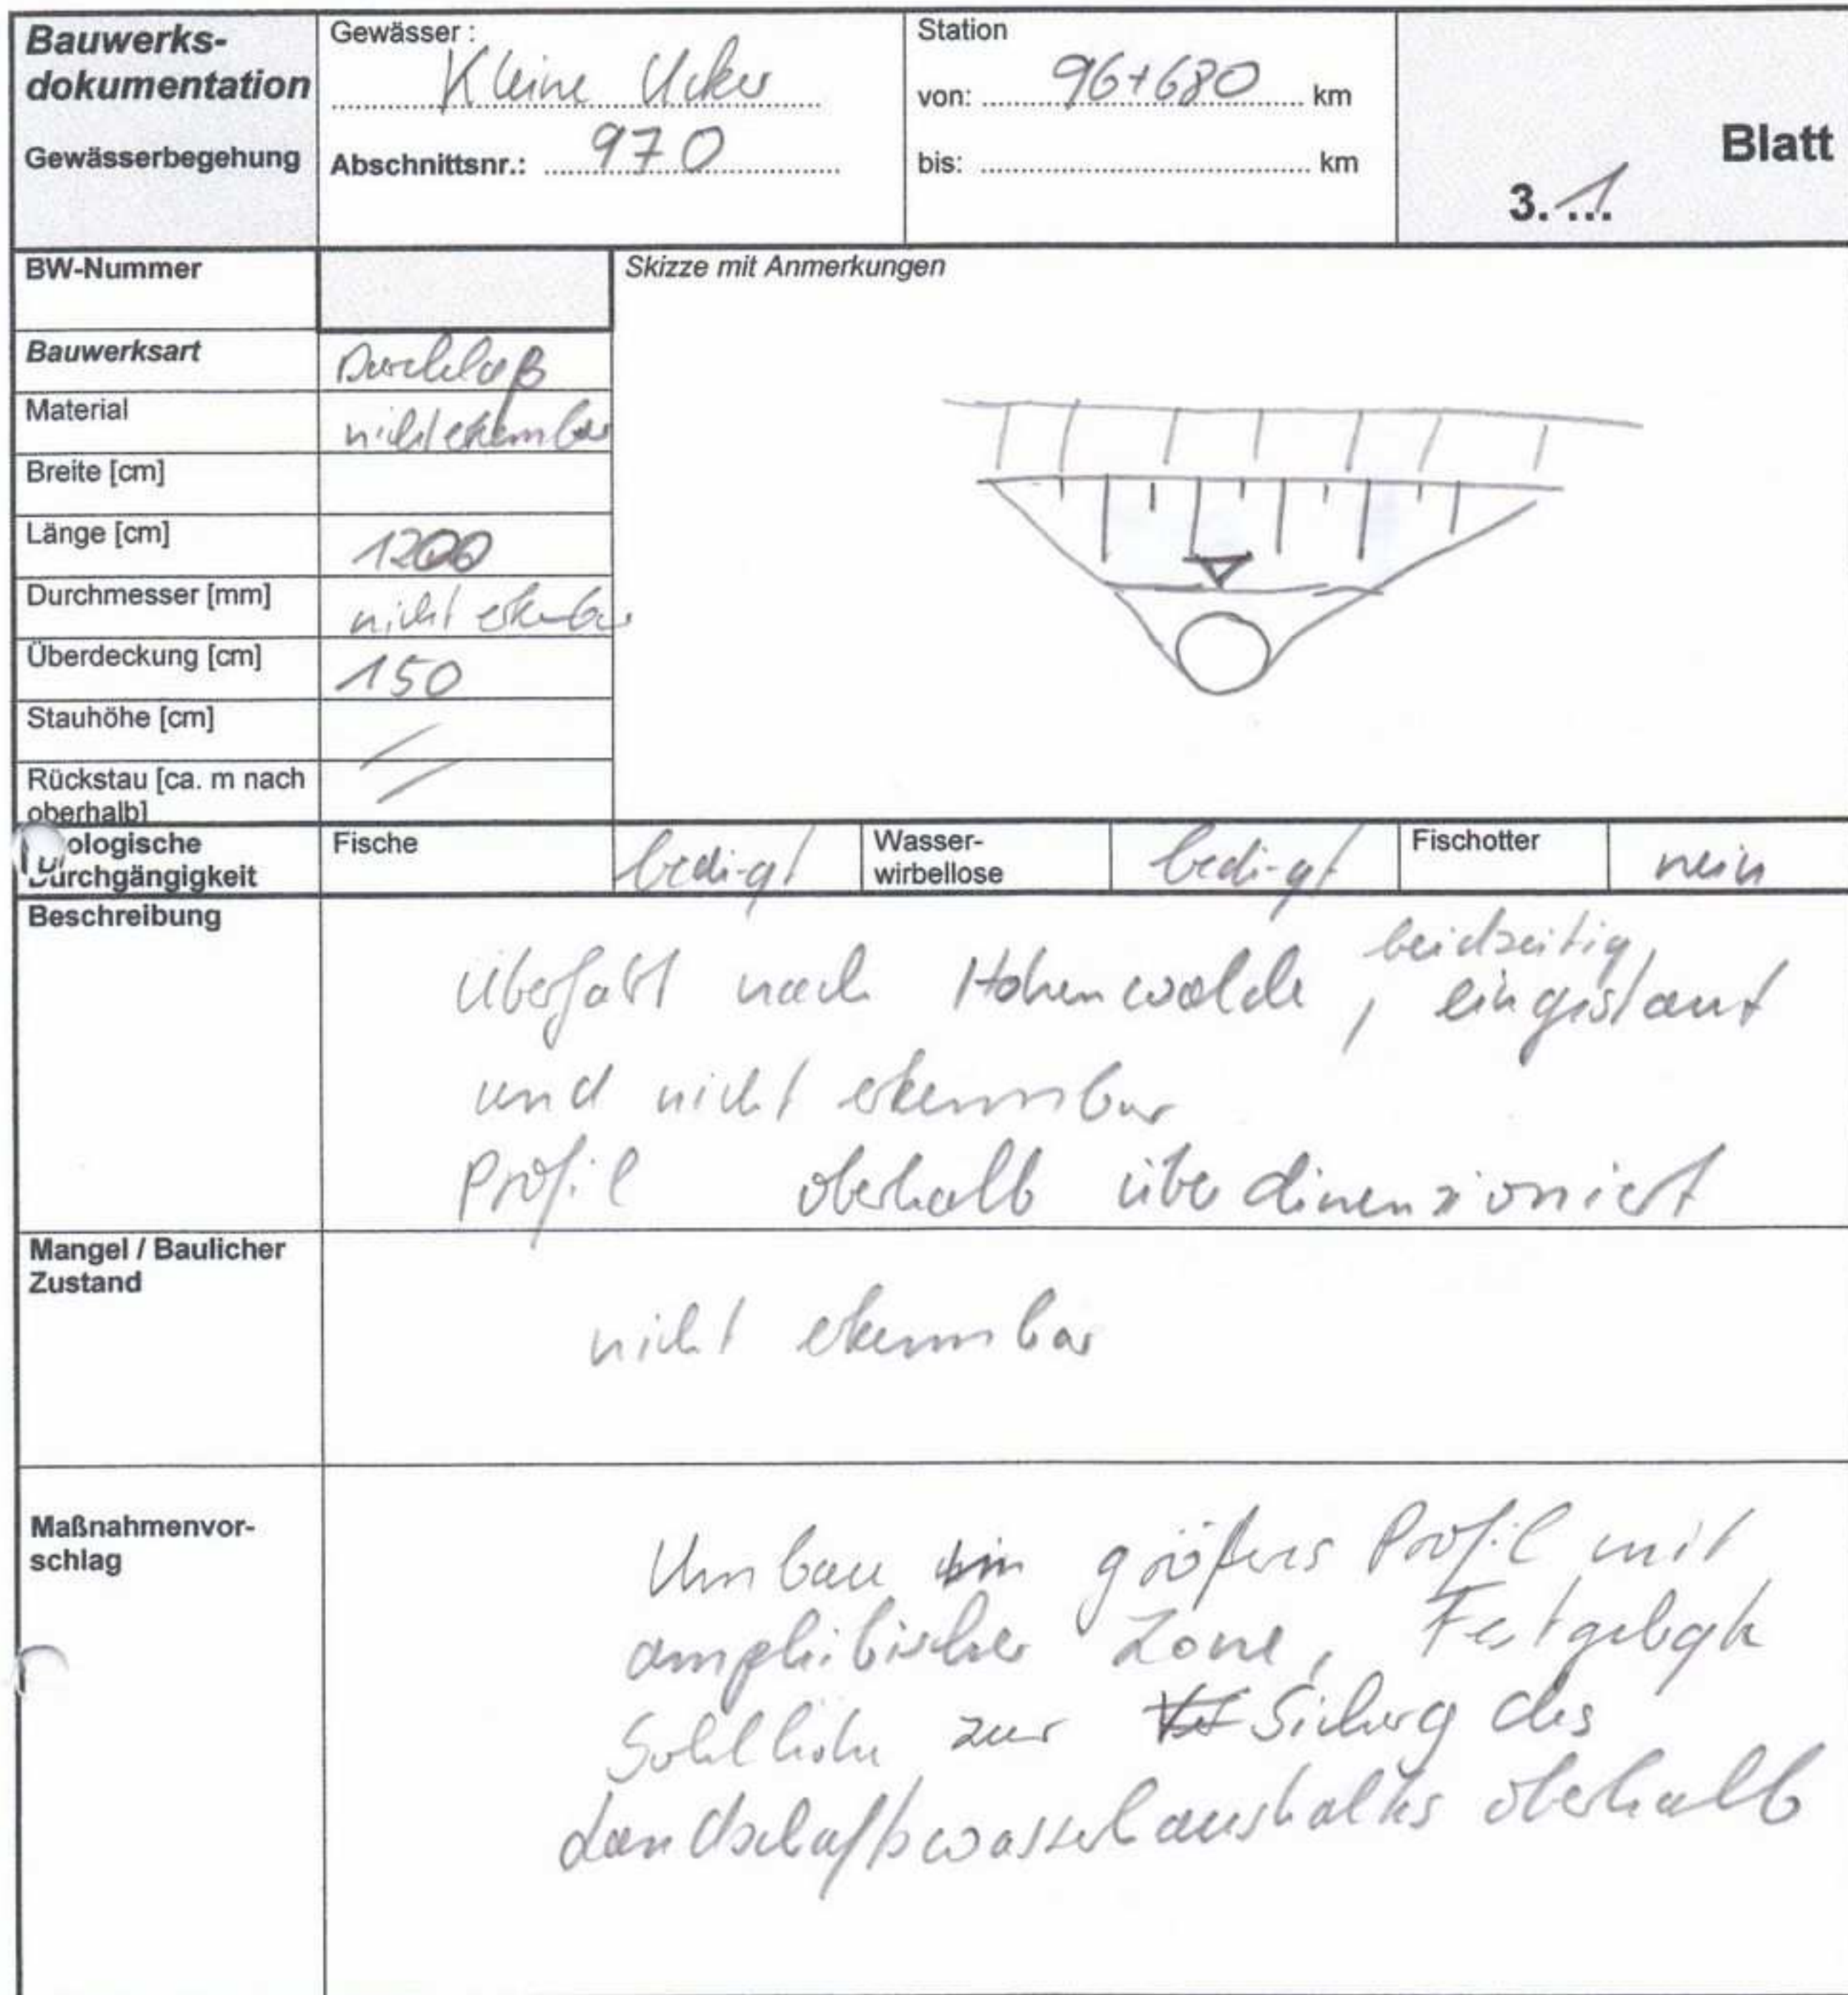 Bauwerks-
dokumentation
Gewässerbegehung
Gewässer :
Kleine Ucker
Abschnittsnr.: 970
Station
von: 96+680 km
bis: km
Blatt
3. 1
BW-Nummer
Skizze mit Anmerkungen
Bauwerksart Durchlaß
Material nicht erkennbar
Breite [cm]
Länge [cm] 1200
Durchmesser [mm] nicht erkennbar
Überdeckung [cm] 150
Stauhöhe [cm] /
Rückstau [ca. m nach /
oberhalb]
ologische
urchgängigkeit
Fische bedingt
Wasser-
wirbellose
bedingt
Fischotter nein
Beschreibung
beidseitig
Überfahrt nach Hohenwalde, eingestaut
und nicht erkennbar
Profil oberhalb überdimensioniert
Mangel / Baulicher
Zustand
nicht erkennbar
Maßnahmenvor-
schlag
Umbau in größeres Profil mit
amphibischer Zone, Festgelegte
Sohlhöhe zur Sicherung des
Landschaftswasserhaushaltes oberhalb